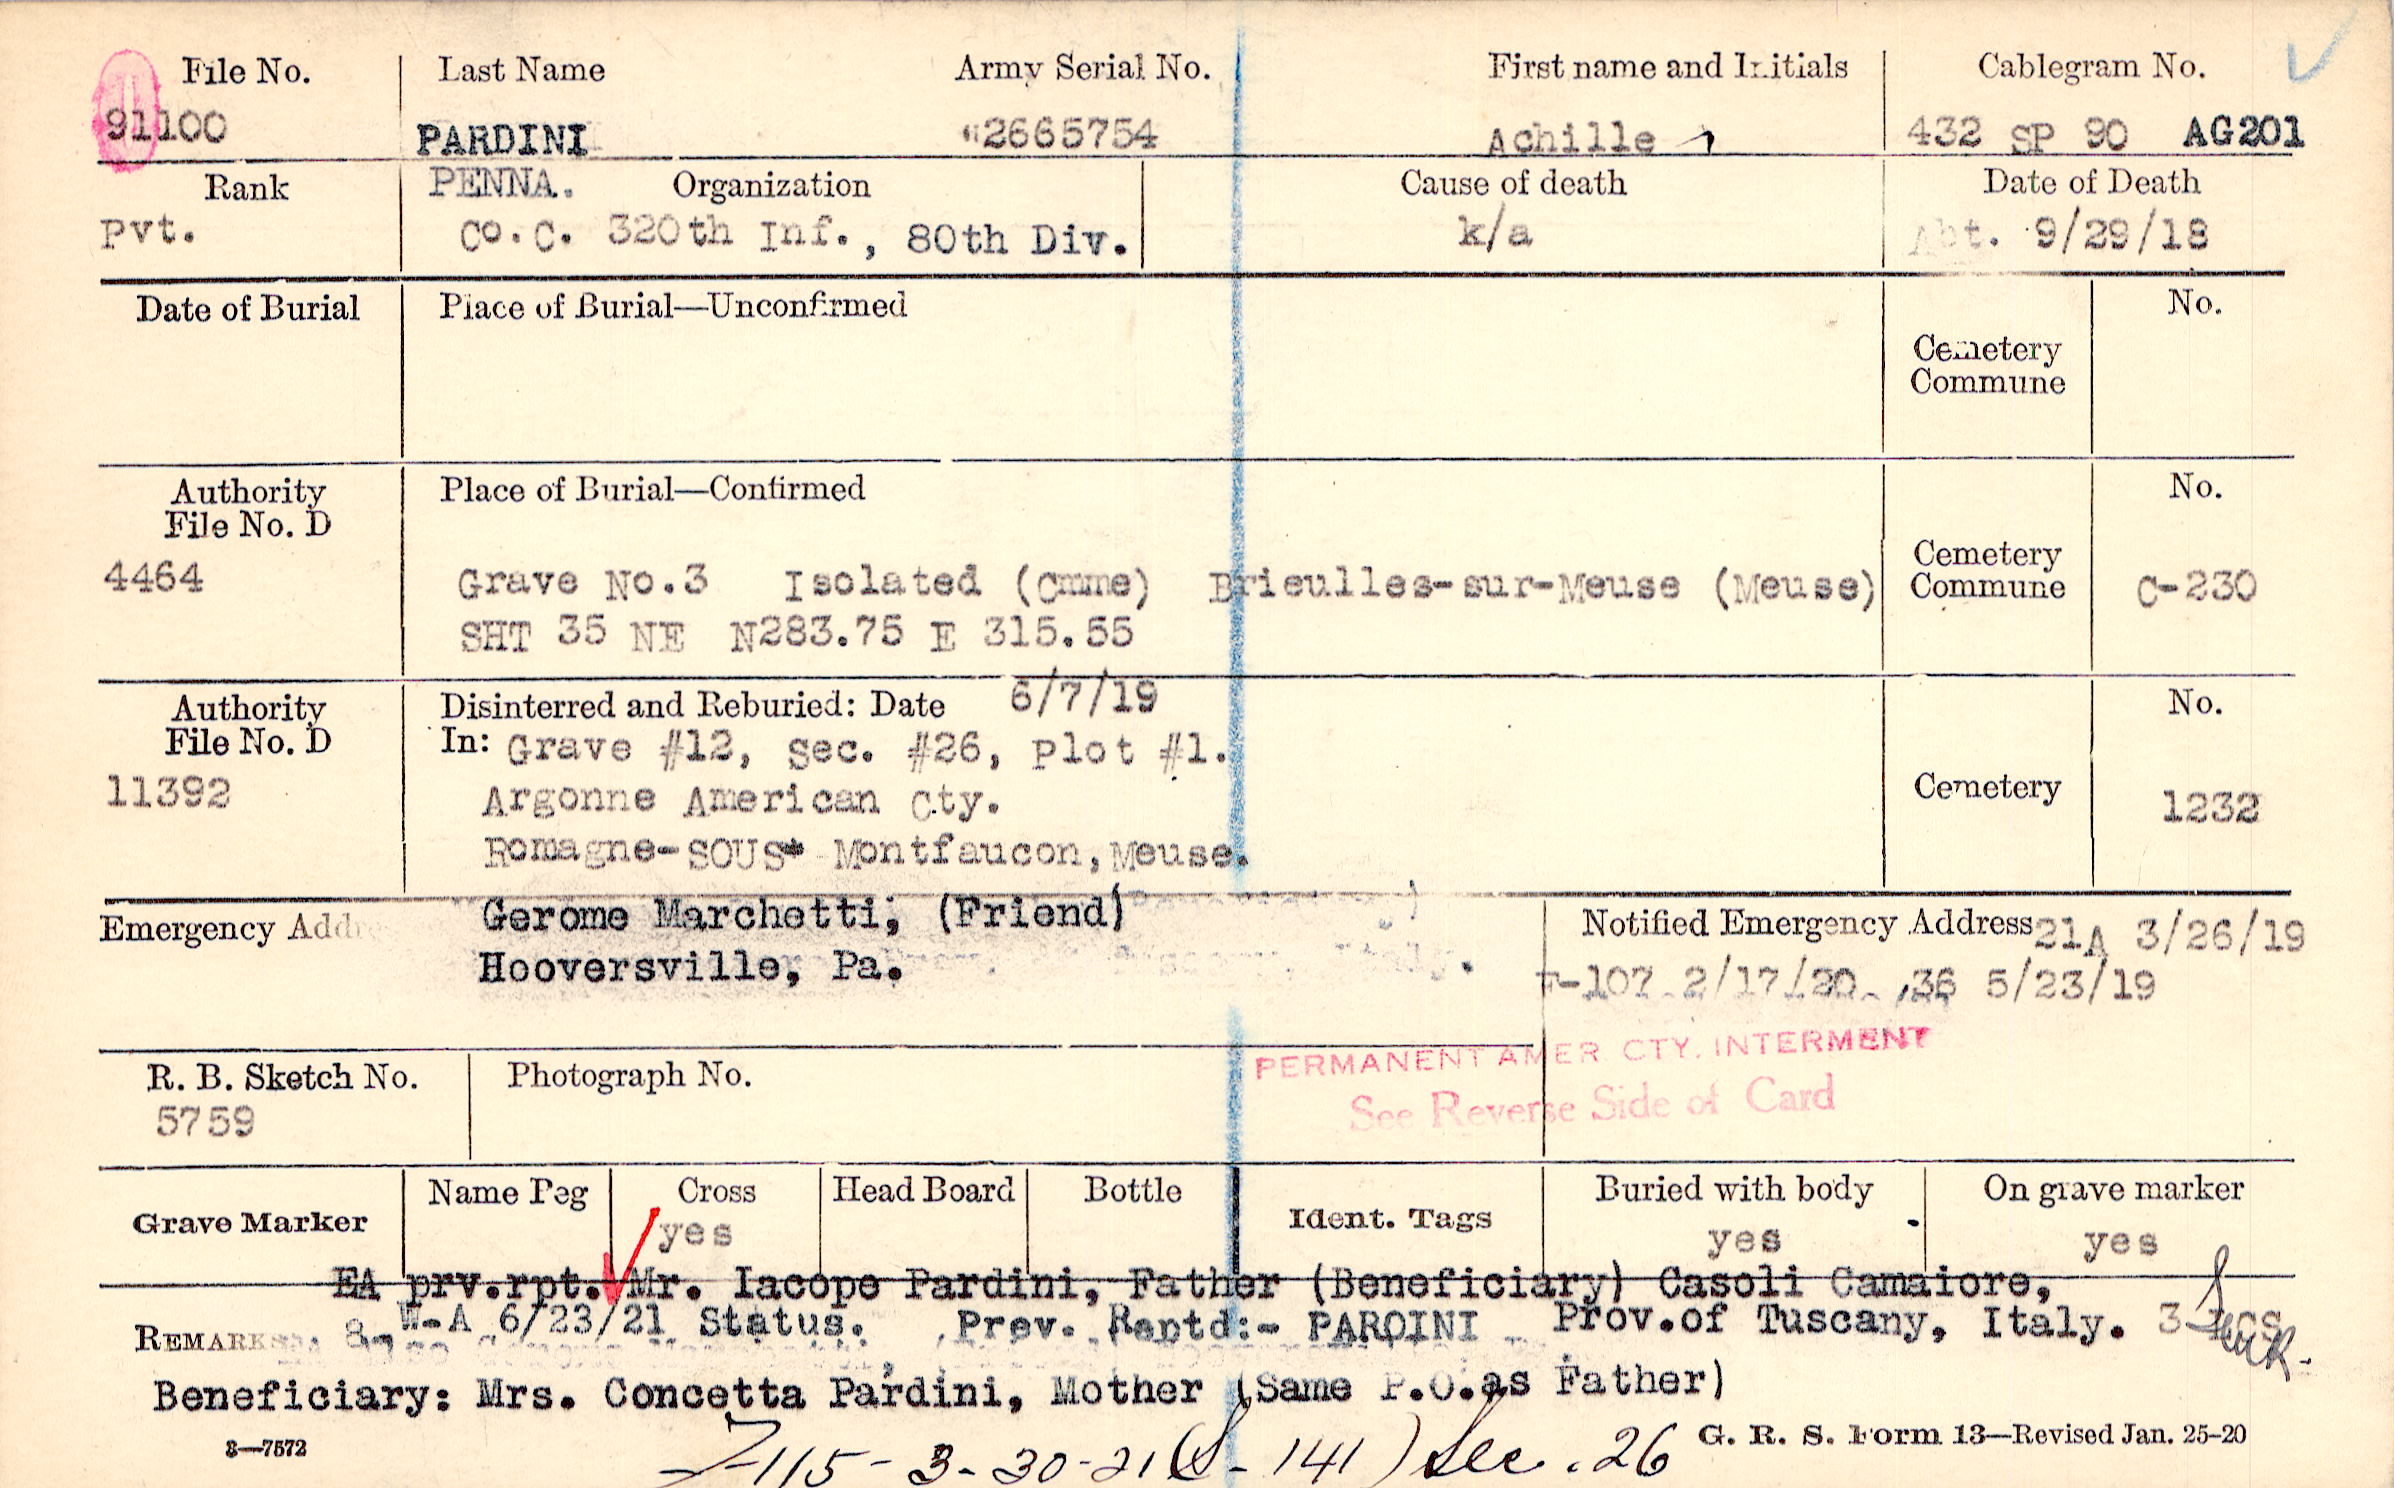 File No. Last Name Army Serial No. First name and Initials Cablegram No.
91100 PARDINI 2665754 Achille 432 SP 90 AG201
Rank PENNA. Organization Cause of death Date of Death
Pvt. Co. C. 320th Inf., 80th Div. k/a Abt. 9/29/18
Date of Burial Place of Burial—Unconfirmed No.
Cemetery
Commune
Authority Place of Burial—Confirmed No.
File No. D
4464 Grave No.3 Isolated (Cmme) Brieulles-sur-Meuse (Meuse) Cemetery
Commune C-230
SHT 35 NE N283.75 E 315.55
Authority Disinterred and Reburied: Date 6/7/19 No.
File No. D In: Grave #12, Sec. #26, Plot #1.
11392 Argonne American Cty. Cemetery 1232
Romagne-SOUS- Montfaucon, Meuse.
Emergency Addre Gerome Marchetti, (Friend) Notified Emergency Address 21A 3/26/19
Hooversville, Pa. F-107 2/17/20 36 5/23/19
PERMANENT AMER CTY. INTERMENT
See Reverse Side of Card
R. B. Sketch No. Photograph No.
5759
Grave Marker Name Peg Cross Head Board Bottle Ident. Tags Buried with body On grave marker
yes yes yes
EA prv.rpt. Mr. Iacopo Pardini, Father (Beneficiary) Casoli Camaiore,
REMARKS W-A 6/23/21 Status. Prev. Reptd:- PAROINI Prov.of Tuscany, Italy.
Beneficiary: Mrs. Concetta Pardini, Mother (Same P.O.as Father)
3—7572 G. R. S. Form 13—Revised Jan. 25-20
115 - 3-30-21 (S-141) Sec. 26